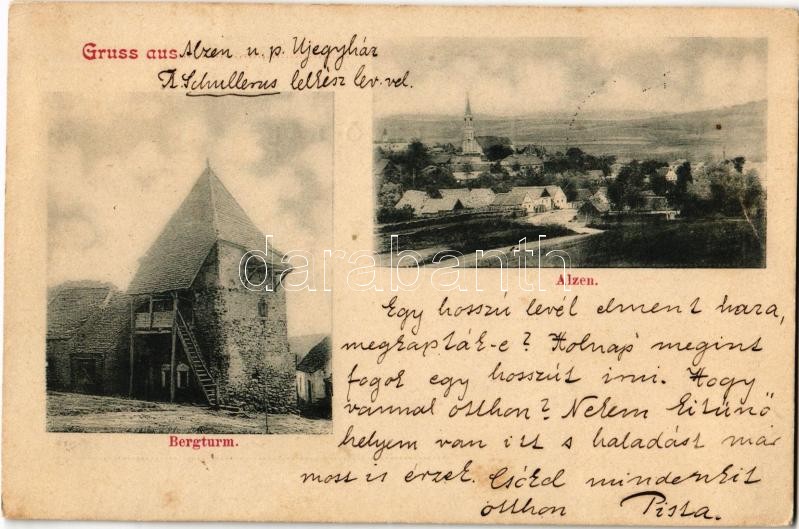 Gruss aus Alzen u. p. Ujegyház
Schullerus lelkész lev. vel.
Alzen.
Bergturm.
Egy hosszú levél elment haza,
megkapták-e? Holnap megint
fogok egy hosszút irni. Hogy
vannak otthon? Nekem kitünő
helyem van itt s haladást már
most is érzek. Csókol mindenkit
otthon Pista.
darabanth